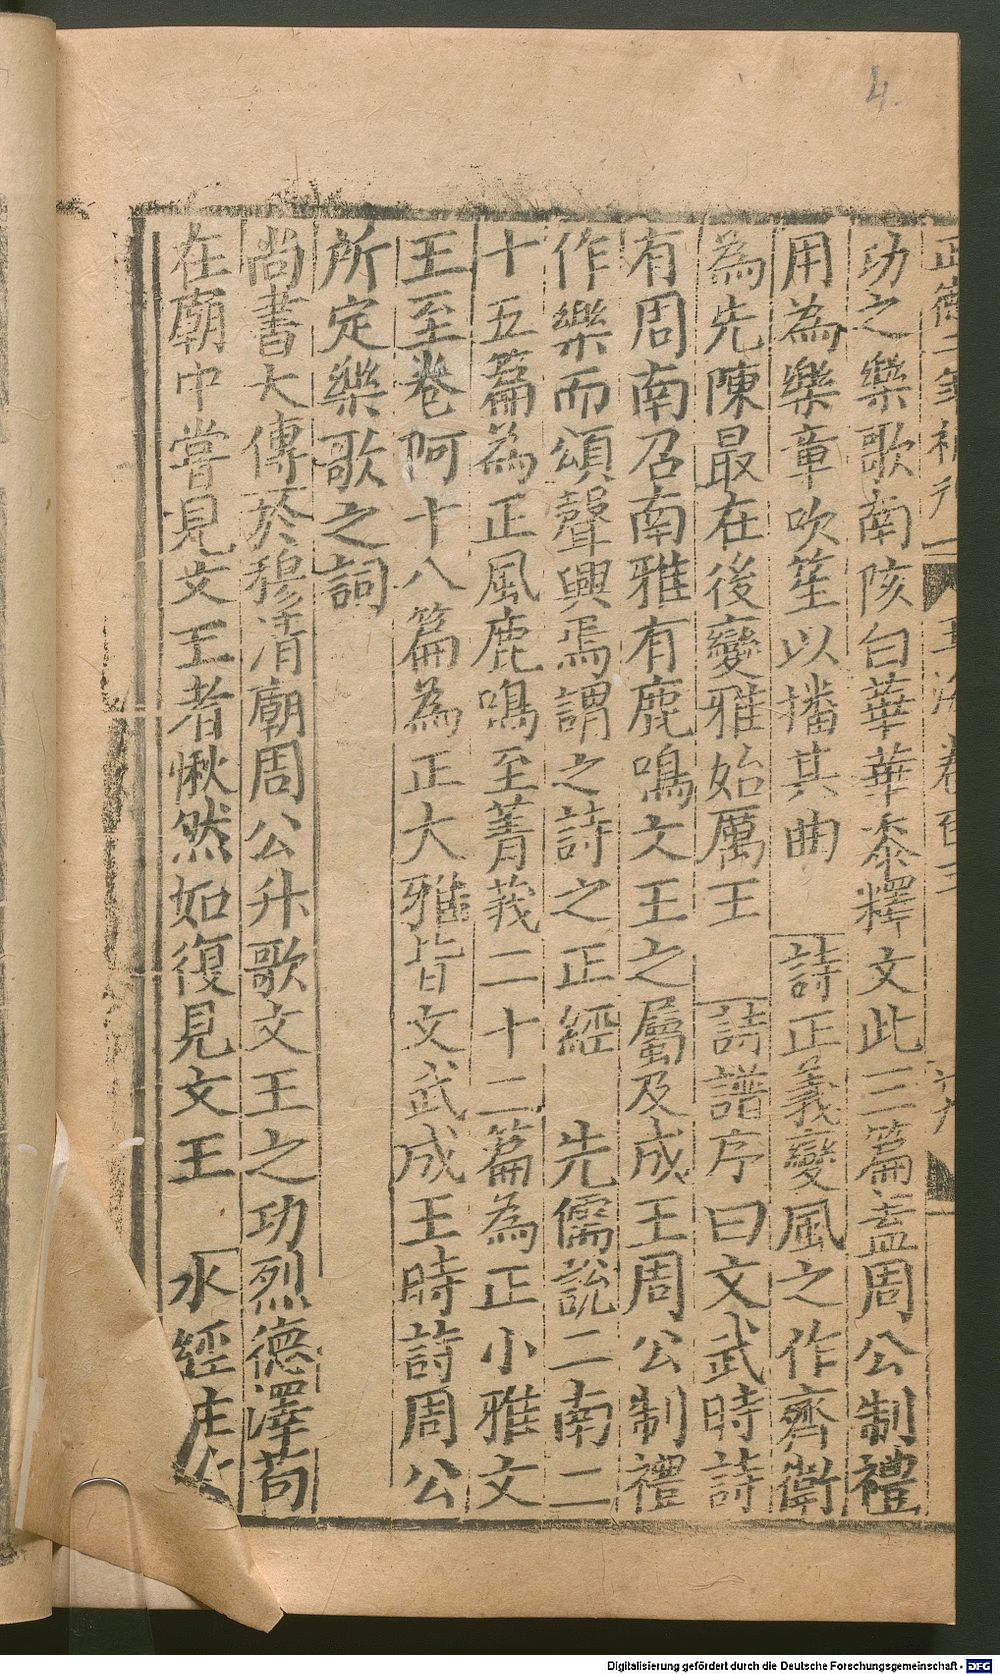 4.
正德二年補刋 玉海卷百三
功之樂歌南陔白華華黍釋文此三篇盖周公制禮
用為樂章吹笙以播其曲 詩正義變風之作齊衛
為先陳最在後變雅始厲王 詩譜序曰文武時詩
有周南召南雅有鹿鳴文王之屬及成王周公制禮
作樂而頌聲興焉謂之詩之正經 先儒說二南二
十五篇為正風鹿鳴至菁莪二十二篇為正小雅文
王至卷阿十八篇為正大雅皆文武成王時詩周公
所定樂歌之詞
尚書大傳於穆清廟周公升歌文王之功烈德澤苟
在廟中嘗見文王者愀然如復見文王 水經注
Digitalisierung gefördert durch die Deutsche Forschungsgemeinschaft - DFG